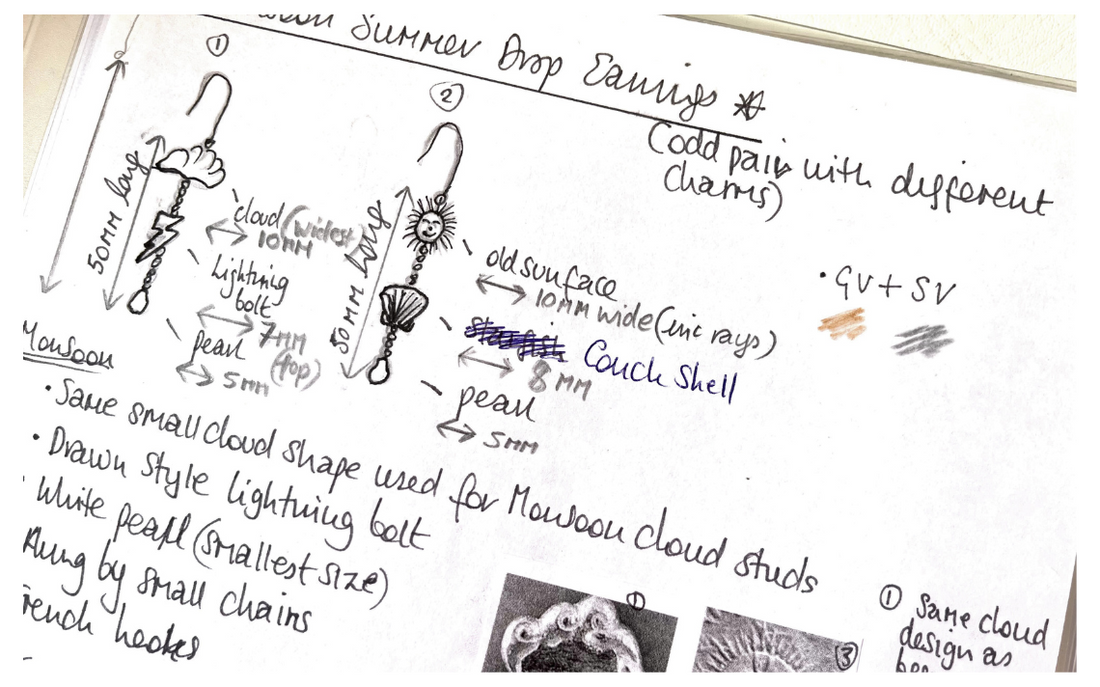 Summer Drop Earrings
(odd pair with different
charms)
①
②
50MM long
cloud (widest)
10MM
lightning
bolt
7MM
(top)
pearl
5MM
50MM long
old sun face
10MM wide (inc rays)
Couch Shell
8MM
pearl
5MM
• GV + SV
Monsoon
• Same small cloud shape used for Monsoon cloud studs
• Drawn style lightning bolt
White pearl (smallest size)
Hung by small chains
french hooks
①
③
① Same cloud
design as